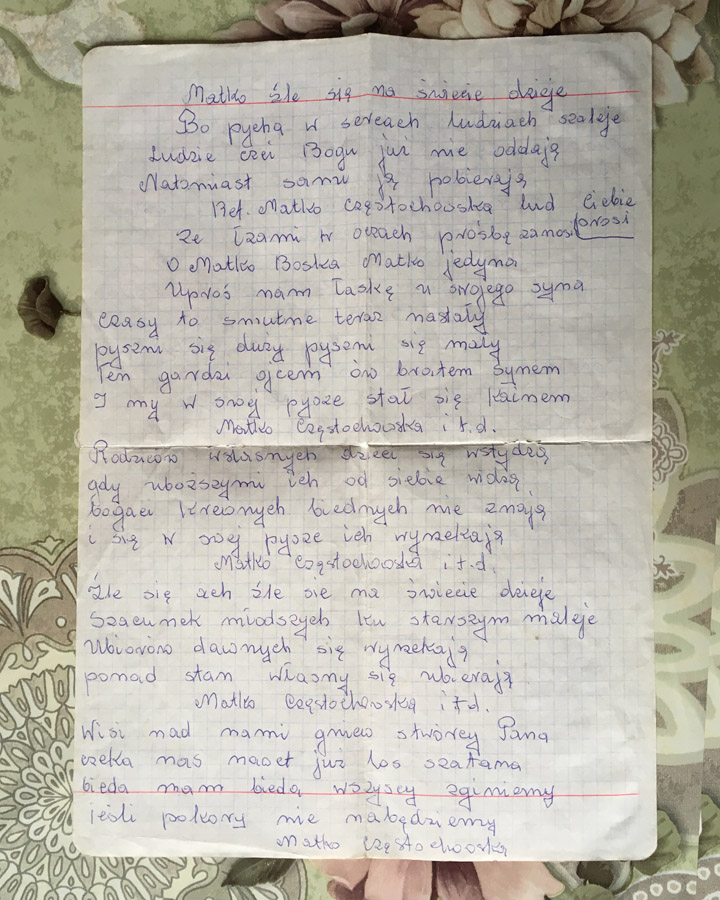 Matko źle się na świecie dzieje
Bo pycha w sercach ludziach szaleje
Ludzie czci Bogu już nie oddają
Natomiast sami ją pobierają
Ref. Matko Częstochowska lud Ciebie prosi
Ze łzami w oczach prośbę zanosi
O Matko Boska Matko jedyna
Uproś nam łaskę u swojego syna
Czasy to smutne teraz nastały
pyszni się duży pyszni się mały
Ten gardzi ojcem ów bratem synem
I my w swej pysze stał się Kainem
Matko Częstochowska i t.d.
Rodziców własnych dzieci się wstydzą
gdy uboższymi ich od siebie widzą
bogaci krewnych biednych nie znają
i się w swej pysze ich wyrzekają
Matko Częstochowska i t.d.
Źle się ach źle sie na świecie dzieje
Szacunek młodszych ku starszym maleje
Ubiorów dawnych się wyrzekają
ponad stan własny się ubierają
Matko Częstochowska i t.d.
Wisi nad nami gniew stwórcy Pana
czeka nas nacet już los szatana
bieda nam bieda wszyscy zginiemy
jeśli pokory nie nabędziemy
Matko Częstochowska